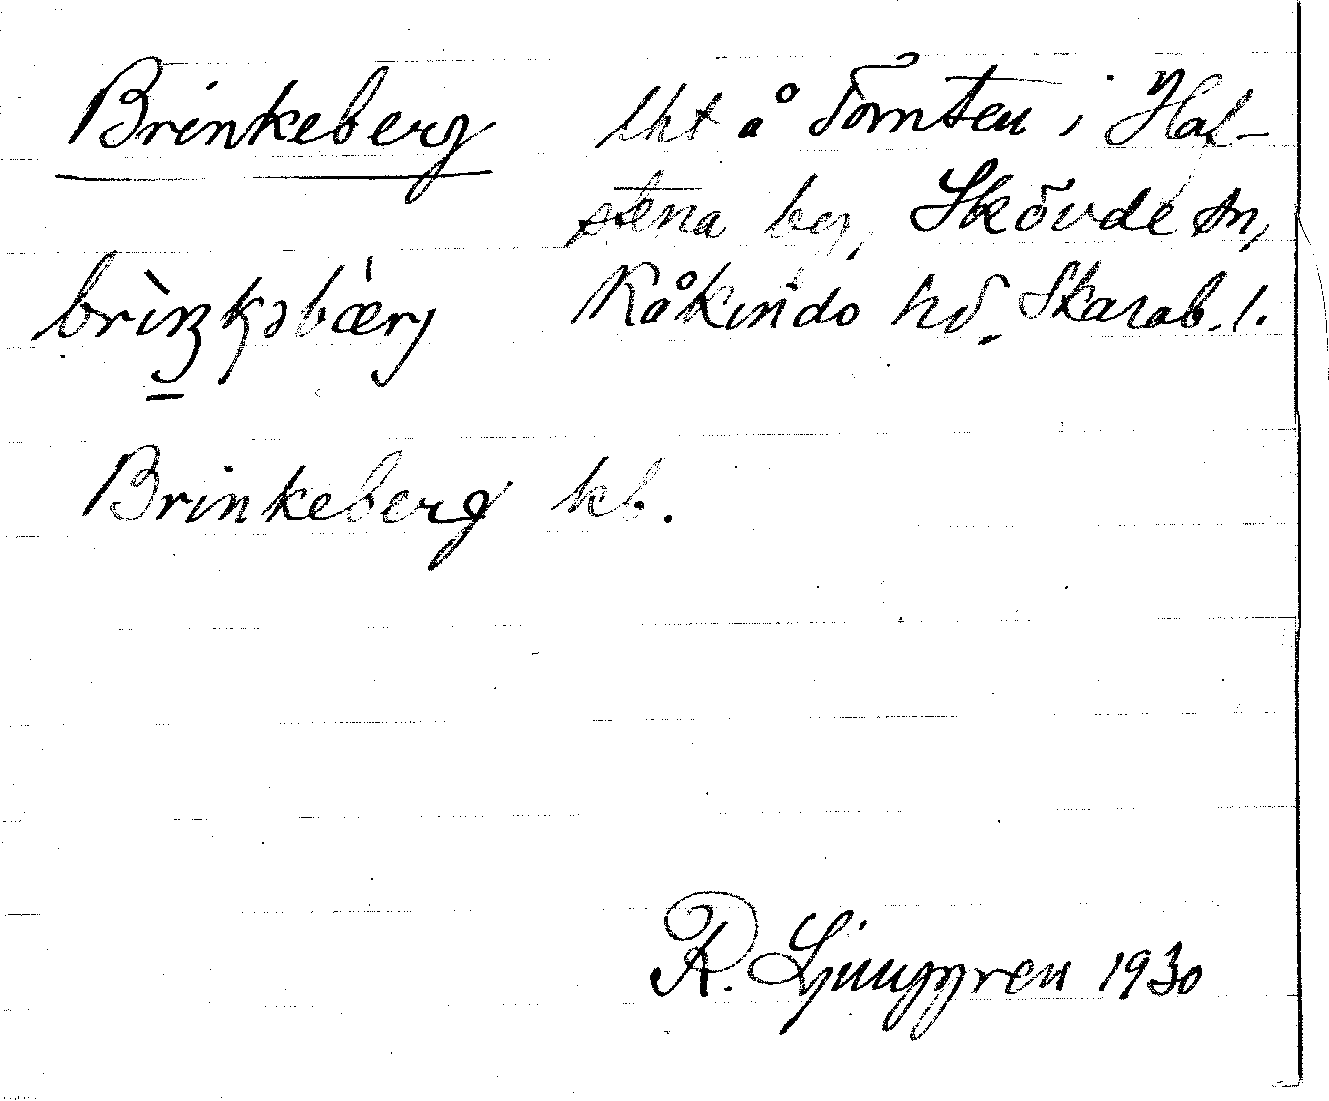 Brinkeberg lht å Tomten i Haf-
stena by, Skövde sn,
Kåkinds hd. Skarab. l.
brìŋkəbæ̀rj
Brinkeberg kb.
R. Ljunggren 1930